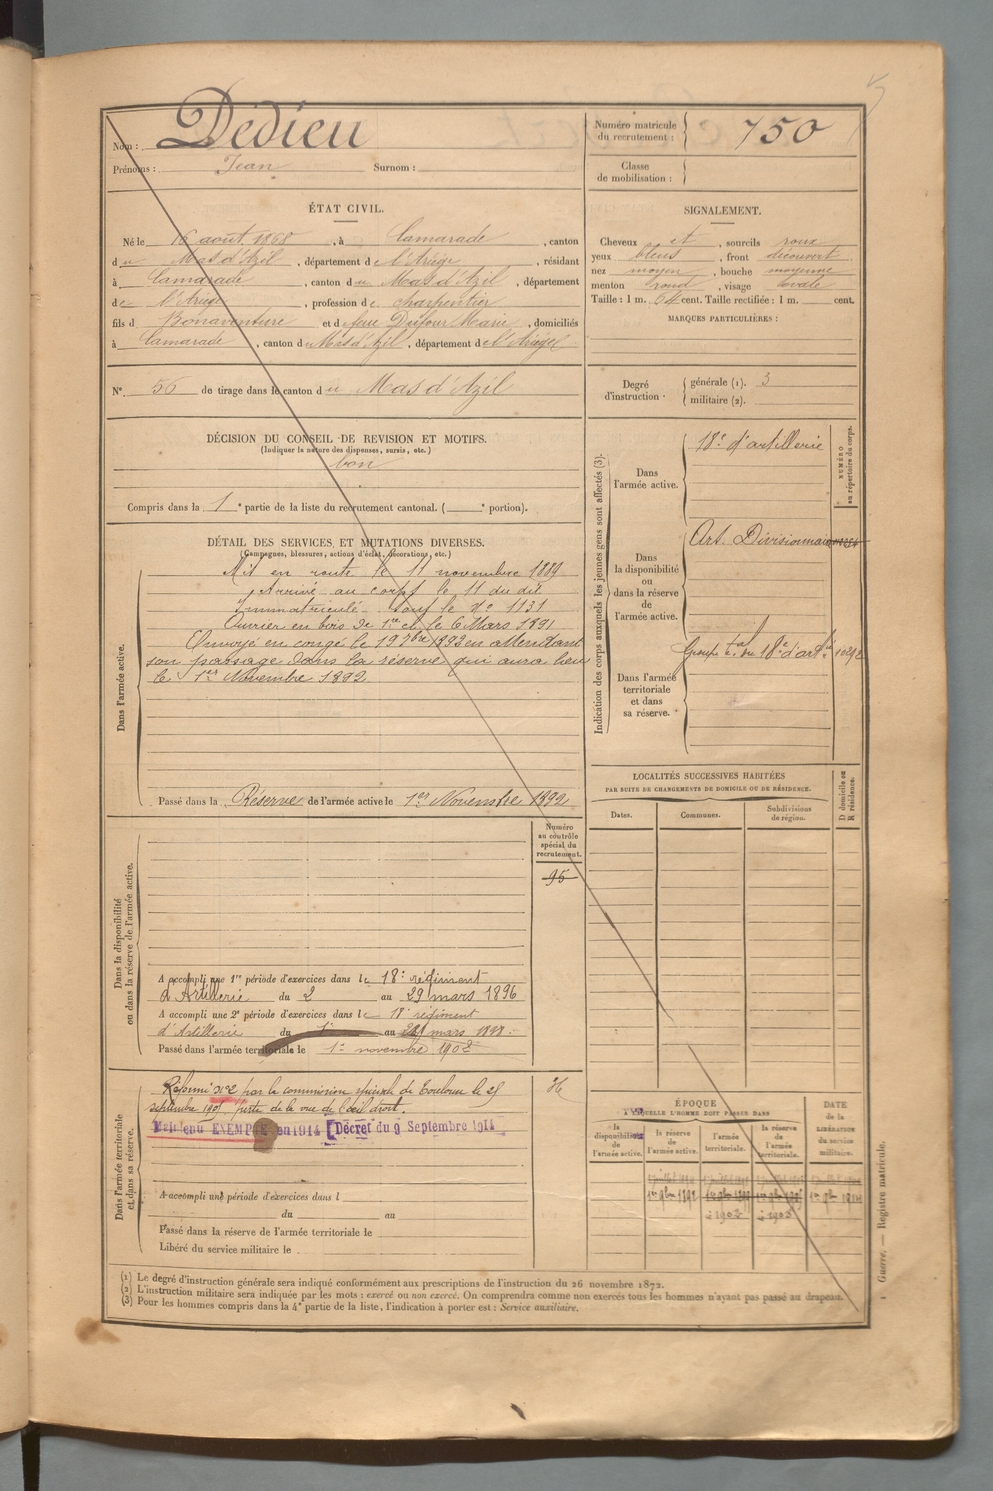 Nom : Dédieu
Prénoms : Jean Surnom :
Numéro matricule du recrutement : 750
Classe de mobilisation :
ÉTAT CIVIL.
Né le 16 août 1868, à Camarade, canton
du Mas d'Azil, département de l'Ariège, résidant
à Camarade, canton du Mas d'Azil, département
de l'Ariège, profession de charpentier
fils d Bonaventure et de feue Dufour Marie, domiciliés
à Camarade, canton du Mas d'Azil, département de l'Ariège.
N° 56 de tirage dans le canton du Mas d'Azil
SIGNALEMENT.
Cheveux et, sourcils roux
yeux bleus, front découvert
nez moyen, bouche moyenne
menton rond, visage ovale
Taille : 1 m. 64 cent. Taille rectifiée : 1 m. cent.
MARQUES PARTICULIÈRES :
Degré d'instruction : générale (1). 3
militaire (2).
DÉCISION DU CONSEIL DE REVISION ET MOTIFS.
(Indiquer la nature des dispenses, sursis, etc.)
bon
Compris dans la 1e partie de la liste du recrutement cantonal. ( e portion).
DÉTAIL DES SERVICES, ET MUTATIONS DIVERSES.
(Campagnes, blessures, actions d'éclat, décorations, etc.)
Dans l'armée active.
Mis en route le 11 novembre 1889
Arrivé au corps le 11 du dit
Immatriculé sous le N° 1131
Ouvrier en bois de 1re cl. le 6 Mars 1891
Envoyé en congé le 19 7bre 1892 en attendant
son passage dans la réserve qui aura lieu
le 1er Novembre 1892
Passé dans la Réserve de l'armée active le 1er Novembre 1892
Indication des corps auxquels les jeunes gens sont affectés (3).
NUMÉRO au répertoire du corps.
Dans l'armée active.
18e d'artillerie
Dans la disponibilité ou dans la réserve de l'armée active.
Art. Divisionnaire
Dans l'armée territoriale et dans sa réserve.
Groupe tal du 18e d'artie
LOCALITÉS SUCCESSIVES HABITÉES
PAR SUITE DE CHANGEMENTS DE DOMICILE OU DE RÉSIDENCE.
Dates. Communes. Subdivisions de région. D domicile ou R résidence.
Dans la disponibilité ou dans la réserve de l'armée active.
Numéro au contrôle spécial du recrutement.
95
A accompli une 1re période d'exercices dans le 18e régiment
d'Artillerie du 2 au 29 mars 1896
A accompli une 2e période d'exercices dans le 18e régiment
d'Artillerie du au mars 1898
Passé dans l'armée territoriale le 1er novembre 1902
Dans l'armée territoriale et dans sa réserve.
Réformé N°2 par la commission spéciale de Toulouse le 25
septembre 1905 perte de la vue de l'œil droit.
Maintenu EXEMPTÉ en 1914 [Décret du 9 Septembre 1914
A accompli une période d'exercices dans l
du au
Passé dans la réserve de l'armée territoriale le
Libéré du service militaire le
ÉPOQUE
A LAQUELLE L'HOMME DOIT PASSER DANS
la disponibilité de l'armée active.
la réserve de l'armée active.
l'armée territoriale.
la réserve de l'armée territoriale.
DATE DE LA LIBÉRATION du service militaire.
1er 9bre 1892
1902
(1) Le degré d'instruction générale sera indiqué conformément aux prescriptions de l'instruction du 26 novembre 1872.
(2) L'instruction militaire sera indiquée par les mots : exercé ou non exercé. On comprendra comme non exercés tous les hommes n'ayant pas passé au drapeau.
(3) Pour les hommes compris dans la 4e partie de la liste, l'indication à porter est : Service auxiliaire.
Guerre. — Registre matricule.